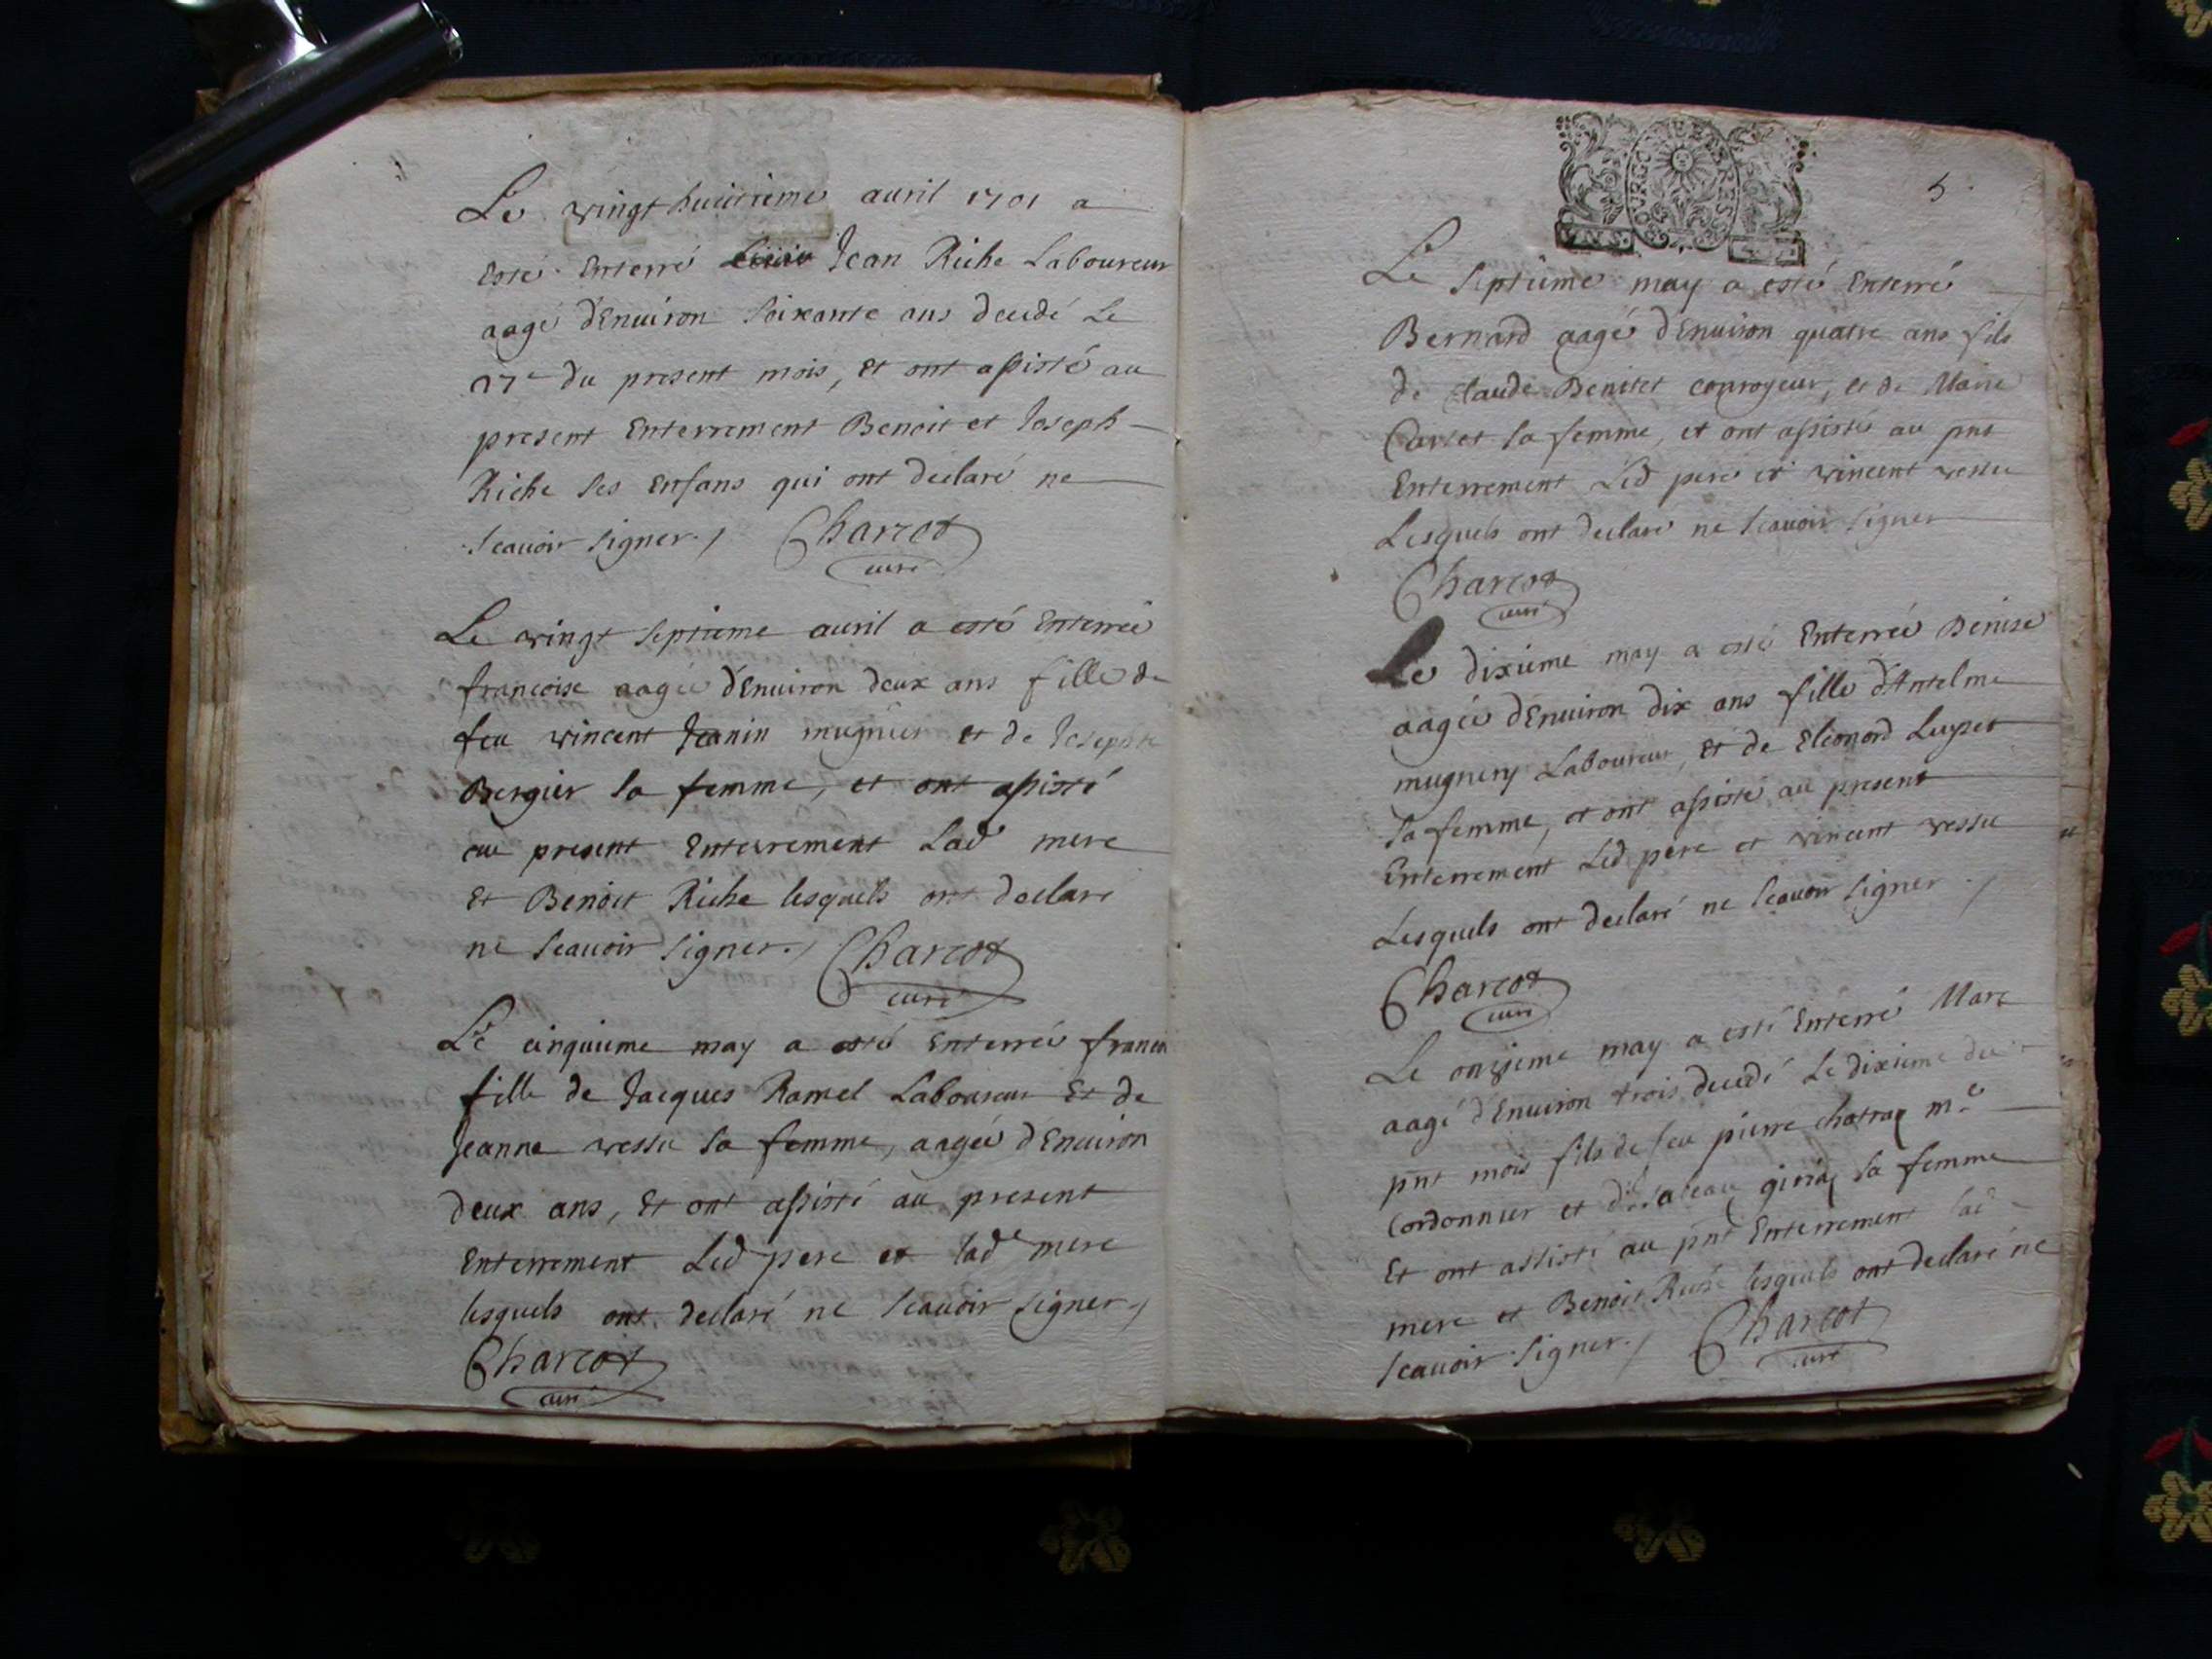 Le vingt huictieme auril 1701 a
esté Enterré Jean Riche Laboureur
aagé d'Enuiron soixante ans decedé Le
27e du present mois, et ont assisté au
present Enterrement Benoit et Joseph
Riche ses Enfans qui ont declaré ne
scauoir signer./ Charcot
curé
Le vingt septieme auril a esté Enterrée
francoise aagée d'Enuiron deux ans fille de
feu vincent Janin mugnier et de Josephte
Bergier sa femme, et ont assisté
au present Enterrement Lad mere
et Benoit Riche lesquels ont declare
ne scauoir signer./ Charcot
curé
Le cinquieme may a esté Enterrée
fille de Jacques Ramel Laboureur et de
Jeanne vessu sa femme, aagée d'Enuiron
deux ans, Et ont assisté au present
Enterrement Led pere et lade mere
lesquels ont declaré ne scauoir signer./
Charcot
curé
5
BOURG BRESSE
Le septieme may a esté Enterré
Bernard aagé d'Enuiron quatre ans fils
de Claude Benitet conroyeur, et de Marie
sa femme, et ont assistés au pnt
Enterrement Led pere et vincent vessu
Lesquels ont declaré ne scauoir signer
Charcot
curé
Le dixieme may a esté Enterrée Denise
aagée d'Enuiron dix ans fille d'Antelme
mugnery Laboureur, et de Eleonord Luyset
sa femme, et ont assisté au present
Enterrement Led pere et vincent vessu
Lesquels ont declaré ne scauoir signer ./
Charcot
curé
Le onzieme may a esté Enterré Marc
aagé d'Enuiron trois decedé Le dixieme du
pnt mois fils de feu pierre m.e
Cordonnier et sa femme
Et ont assisté au pnt Enterrement lad
mere et Benoit Riche lesquels ont declaré ne
scauoir signer./ Charcot
curé